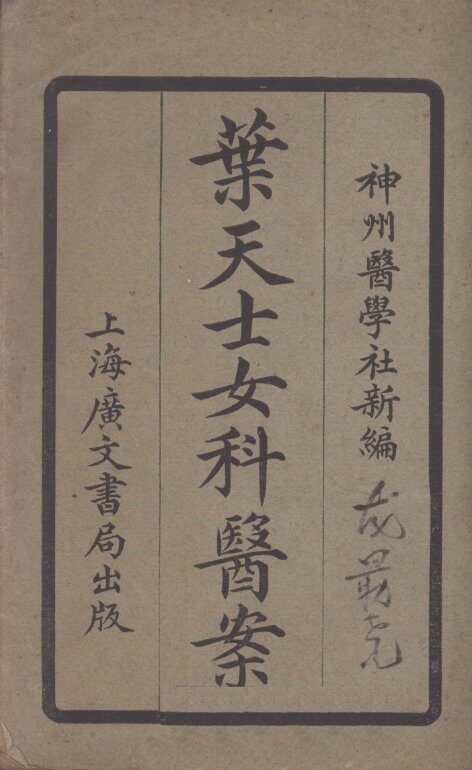 神州醫學社新編
葉天士女科醫案
上海廣文書局出版